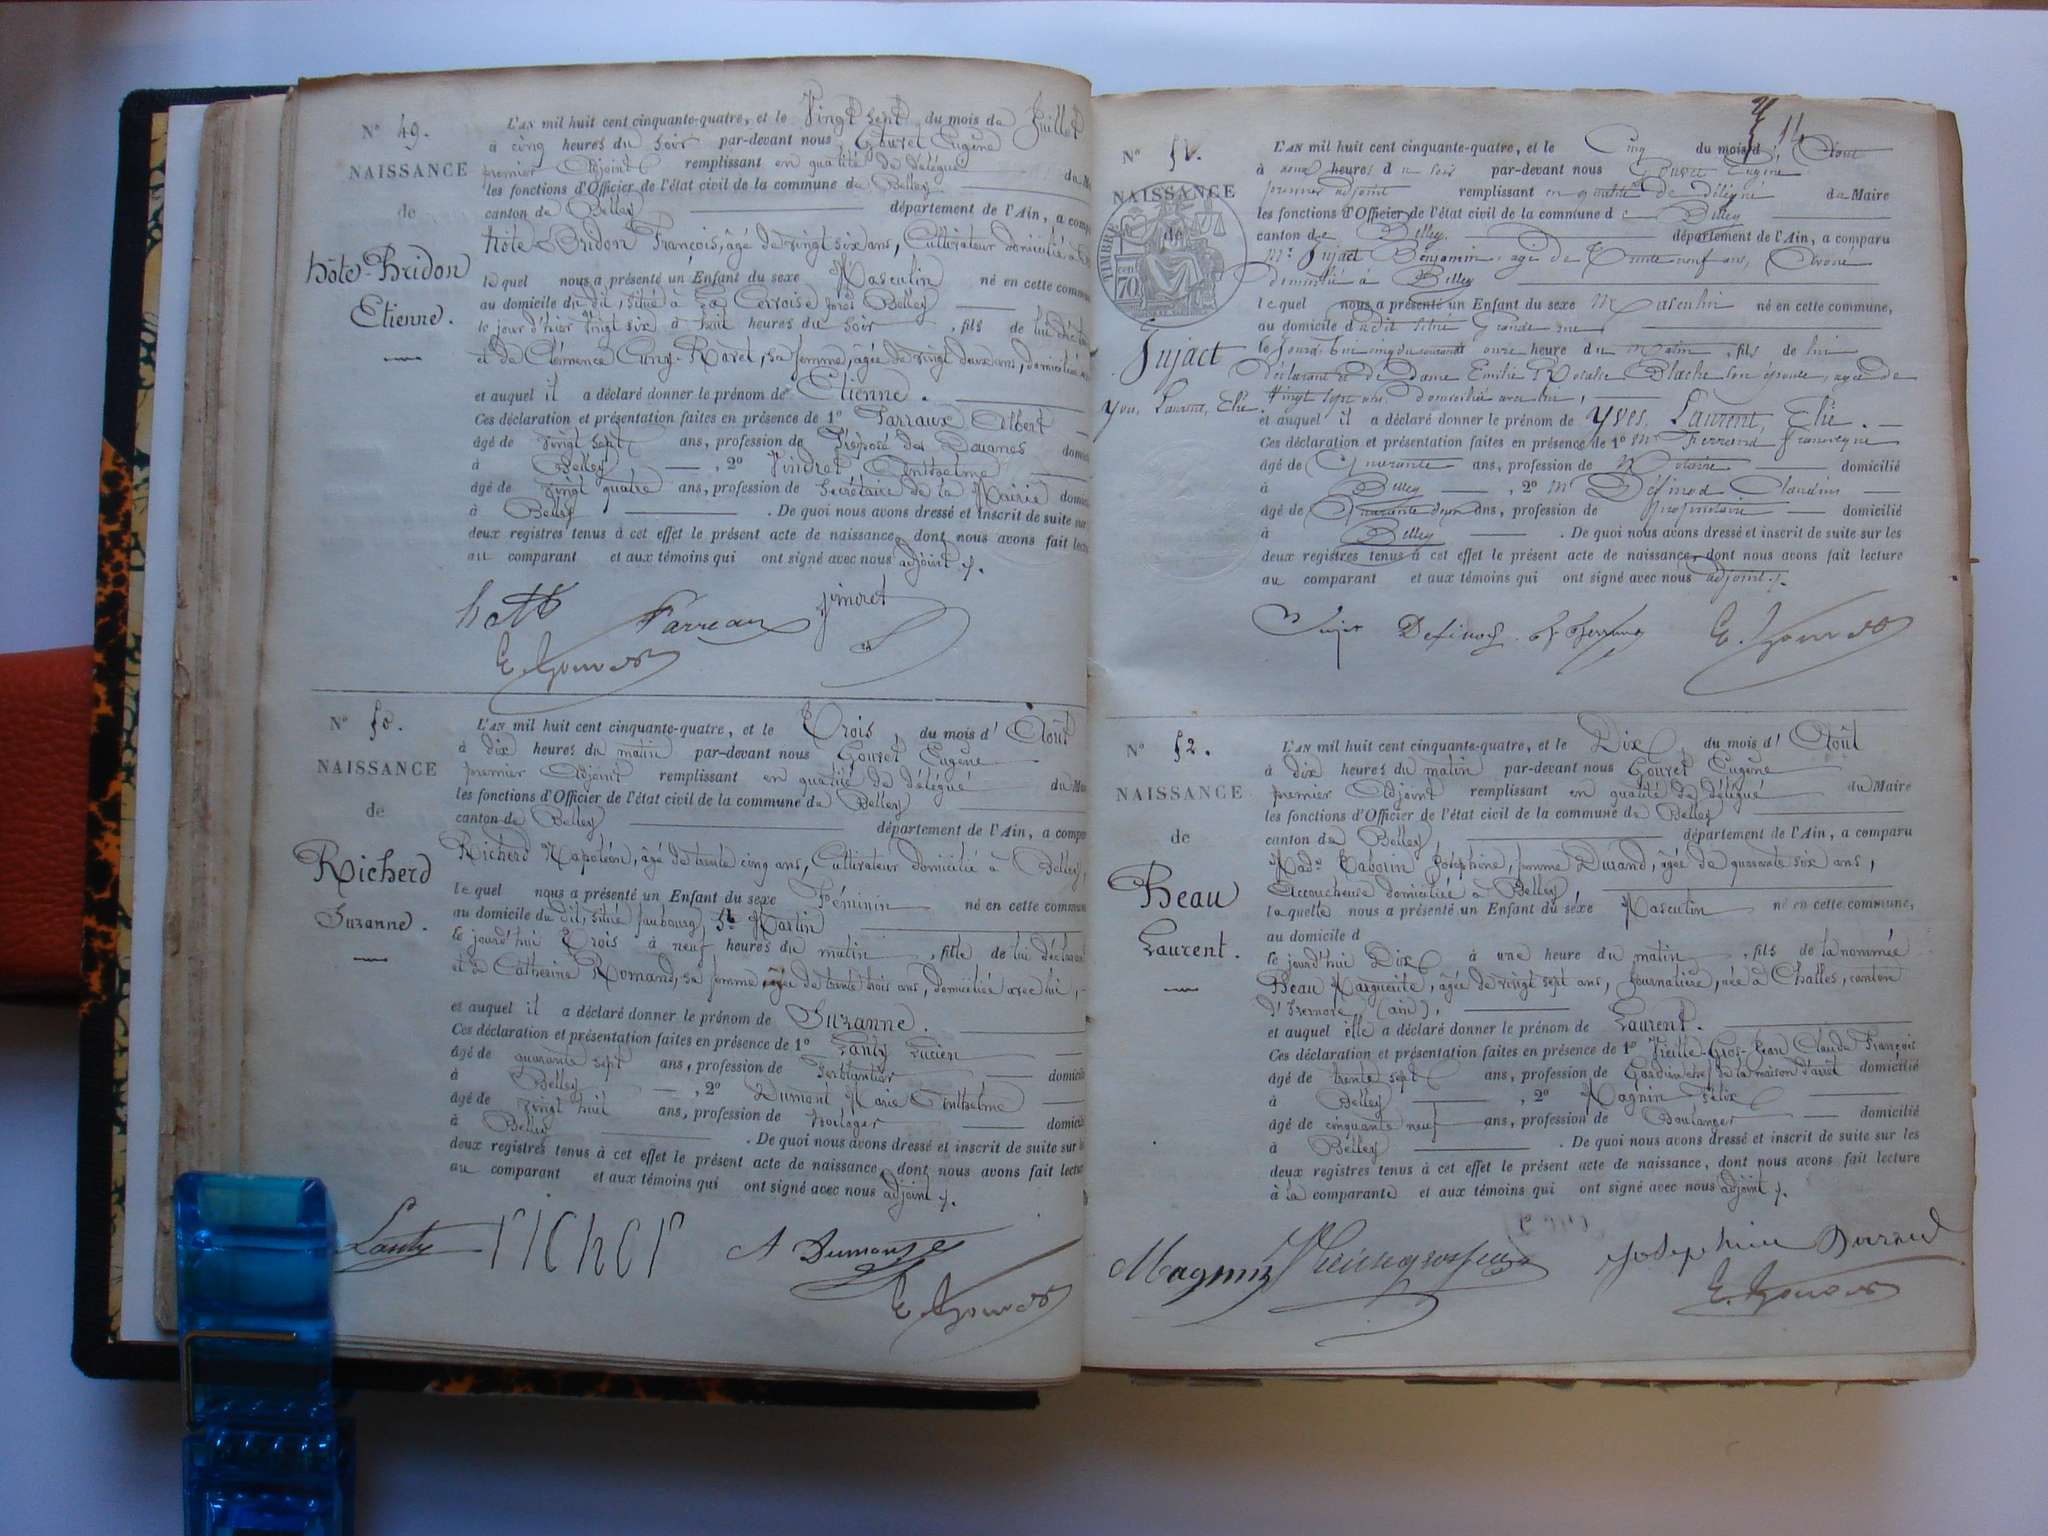 N° 49.
NAISSANCE
de
hôte-Bridon
Etienne.
L'AN mil huit cent cinquante-quatre, et le Vingt sept du mois de Juillet
à cinq heures du soir par-devant nous Gouvet Eugène
premier Adjoint remplissant en qualité de délégué du
les fonctions d'Officier de l'état civil de la commune de Belley
canton de Belley département de l'Ain, a
hôte Bridon François, âgé de vingt six ans, Cultivateur domicilié à
lequel nous a présenté un Enfant du sexe Masculin né en cette
au domicile du dit, situé à près Belley
le jour d'hier vingt six à huit heures du soir, fils de lui
et de Clémence sa femme, âgée de vingt deux ans,
et auquel il a déclaré donner le prénom de Etienne.
Ces déclaration et présentation faites en présence de 1° Farraux Albert
âgé de vingt sept ans, profession de Préposé des Douanes
à Belley, 2° Vindret Anthelme
âgé de vingt quatre ans, profession de Secrétaire de la Mairie
à Belley. De quoi nous avons dressé et inscrit de suite sur
deux registres tenus à cet effet le présent acte de naissance, dont nous avons fait
au comparant et aux témoins qui ont signé avec nous adjoint.
Farreau
E. Gouvet
N° 50.
NAISSANCE
de
Richerd
Suzanne.
L'AN mil huit cent cinquante-quatre, et le Trois, du mois d'Août
à dix heures du matin par-devant nous Gouvet Eugène
premier Adjoint remplissant en qualité de délégué du
les fonctions d'Officier de l'état civil de la commune de Belley
canton de Belley département de l'Ain, a
Richerd Napoléon, âgé de trente cinq ans, Cultivateur domicilié à Belley,
lequel nous a présenté un Enfant du sexe Féminin né en cette
au domicile du dit, situé faubourg, St Martin
le jourd'hui Trois à neuf heures du matin, fille de lui
et de Catherine Romand, sa femme âgée de trente trois ans, domiciliée avec lui,
et auquel il a déclaré donner le prénom de Suzanne.
Ces déclaration et présentation faites en présence de 1° Lanty Lucien
âgé de quarante sept ans, profession de Ferblantier
à Belley, 2° Dumont, Marie Anthelme
âgé de vingt huit ans, profession de horloger
à Belley. De quoi nous avons dressé et inscrit de suite sur
deux registres tenus à cet effet le présent acte de naissance, dont nous avons fait
au comparant et aux témoins qui ont signé avec nous adjoint.
Lanty richer A Dumont
E. Gouvet
14
N° 51.
NAISSANCE
de
TIMBRE
70
Jujat
Yves, Laurent, Elie.
L'AN mil huit cent cinquante-quatre, et le Cinq du mois d'Août
à heures du soir par-devant nous Gouvet Eugène
premier adjoint remplissant en qualité de délégué du Maire
les fonctions d'Officier de l'état civil de la commune de Belley
canton de Belley département de l'Ain, a comparu
Mr Jujat Benjamin, agé de Trente neuf ans, Avoué
domicilié à Belley
lequel nous a présenté un Enfant du sexe Masculin né en cette commune,
au domicile du dit situé Grande rue
le jourd'hui cinq du courant onze heure du matin, fils de lui
déclarant et de Dame Emilie Rosalie Blache son épouse, agée de
Vingt sept ans, domiciliée avec lui,
et auquel il a déclaré donner le prénom de Yves, Laurent, Elie.
Ces déclaration et présentation faites en présence de 1° Mr Ferrand
âgé de Quarante ans, profession de Notaire domicilié
à Belley, 2° Mr Définod Claudius
âgé de Quarante deux ans, profession de propriétaire domicilié
à Belley. De quoi nous avons dressé et inscrit de suite sur les
deux registres tenus à cet effet le présent acte de naissance, dont nous avons fait lecture
au comparant et aux témoins qui ont signé avec nous adjoint.
Definod. Ferrand E. Gouvet
N° 52.
NAISSANCE
de
Beau
Laurent.
L'AN mil huit cent cinquante-quatre, et le Dix, du mois d'Août
à dix heures du matin par-devant nous Gouvet Eugène
premier Adjoint remplissant en qualité de délégué du Maire
les fonctions d'Officier de l'état civil de la commune de Belley
canton de Belley département de l'Ain, a comparu
Made Joséphine, femme Durand, âgée de quarante six ans,
Accoucheuse domiciliée à Belley,
laquelle nous a présenté un Enfant du sexe Masculin né en cette commune,
au domicile d
le jourd'hui Dix à une heure du matin, fils de la nommée
Beau Marguerite, âgée de vingt sept ans, journalière, née à Challes, canton
d'Izernore (ain),
et auquel elle a déclaré donner le prénom de Laurent.
Ces déclaration et présentation faites en présence de 1° Vieille-Gros-Jean Claude François
âgé de trente sept ans, profession de Gardien chef de la maison d'arrêt domicilié
à Belley, 2° Magnin Félix
âgé de cinquante neuf ans, profession de Boulanger domicilié
à Belley. De quoi nous avons dressé et inscrit de suite sur les
deux registres tenus à cet effet le présent acte de naissance, dont nous avons fait lecture
à la comparante et aux témoins qui ont signé avec nous adjoint.
Magnin Josephine Durand
E. Gouvet